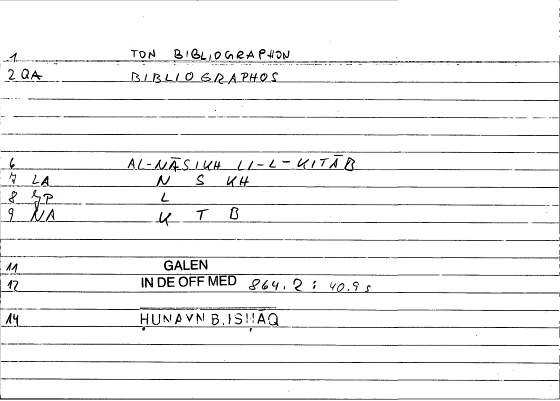 1 TON BIBLIOGRAPHON
2 QA BIBLIOGRAPHOS
6 AL-NĀSIKH LI-L-KITĀB
7 LA N S KH
8 L
9 NA K T B
11 GALEN
12 IN DE OFF MED 864.2 : 40.9 s
14 ḤUNAYN B.ISḤĀQ